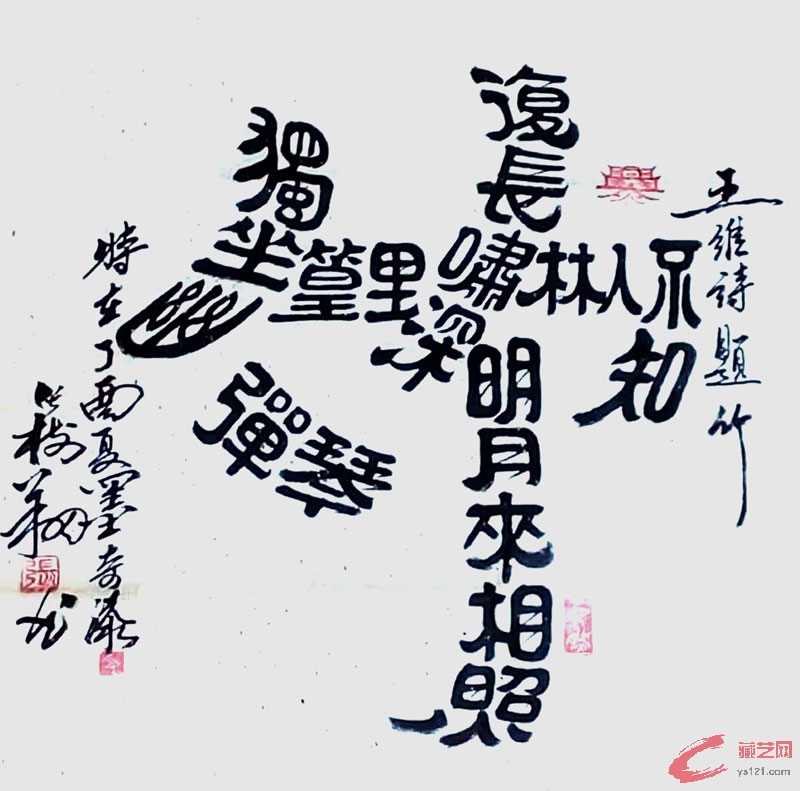 王維詩題竹
獨坐幽篁里
彈琴復長嘯
深林人不知
明月來相照
時在丁酉夏墨奇
張
藏艺网
ys121.com